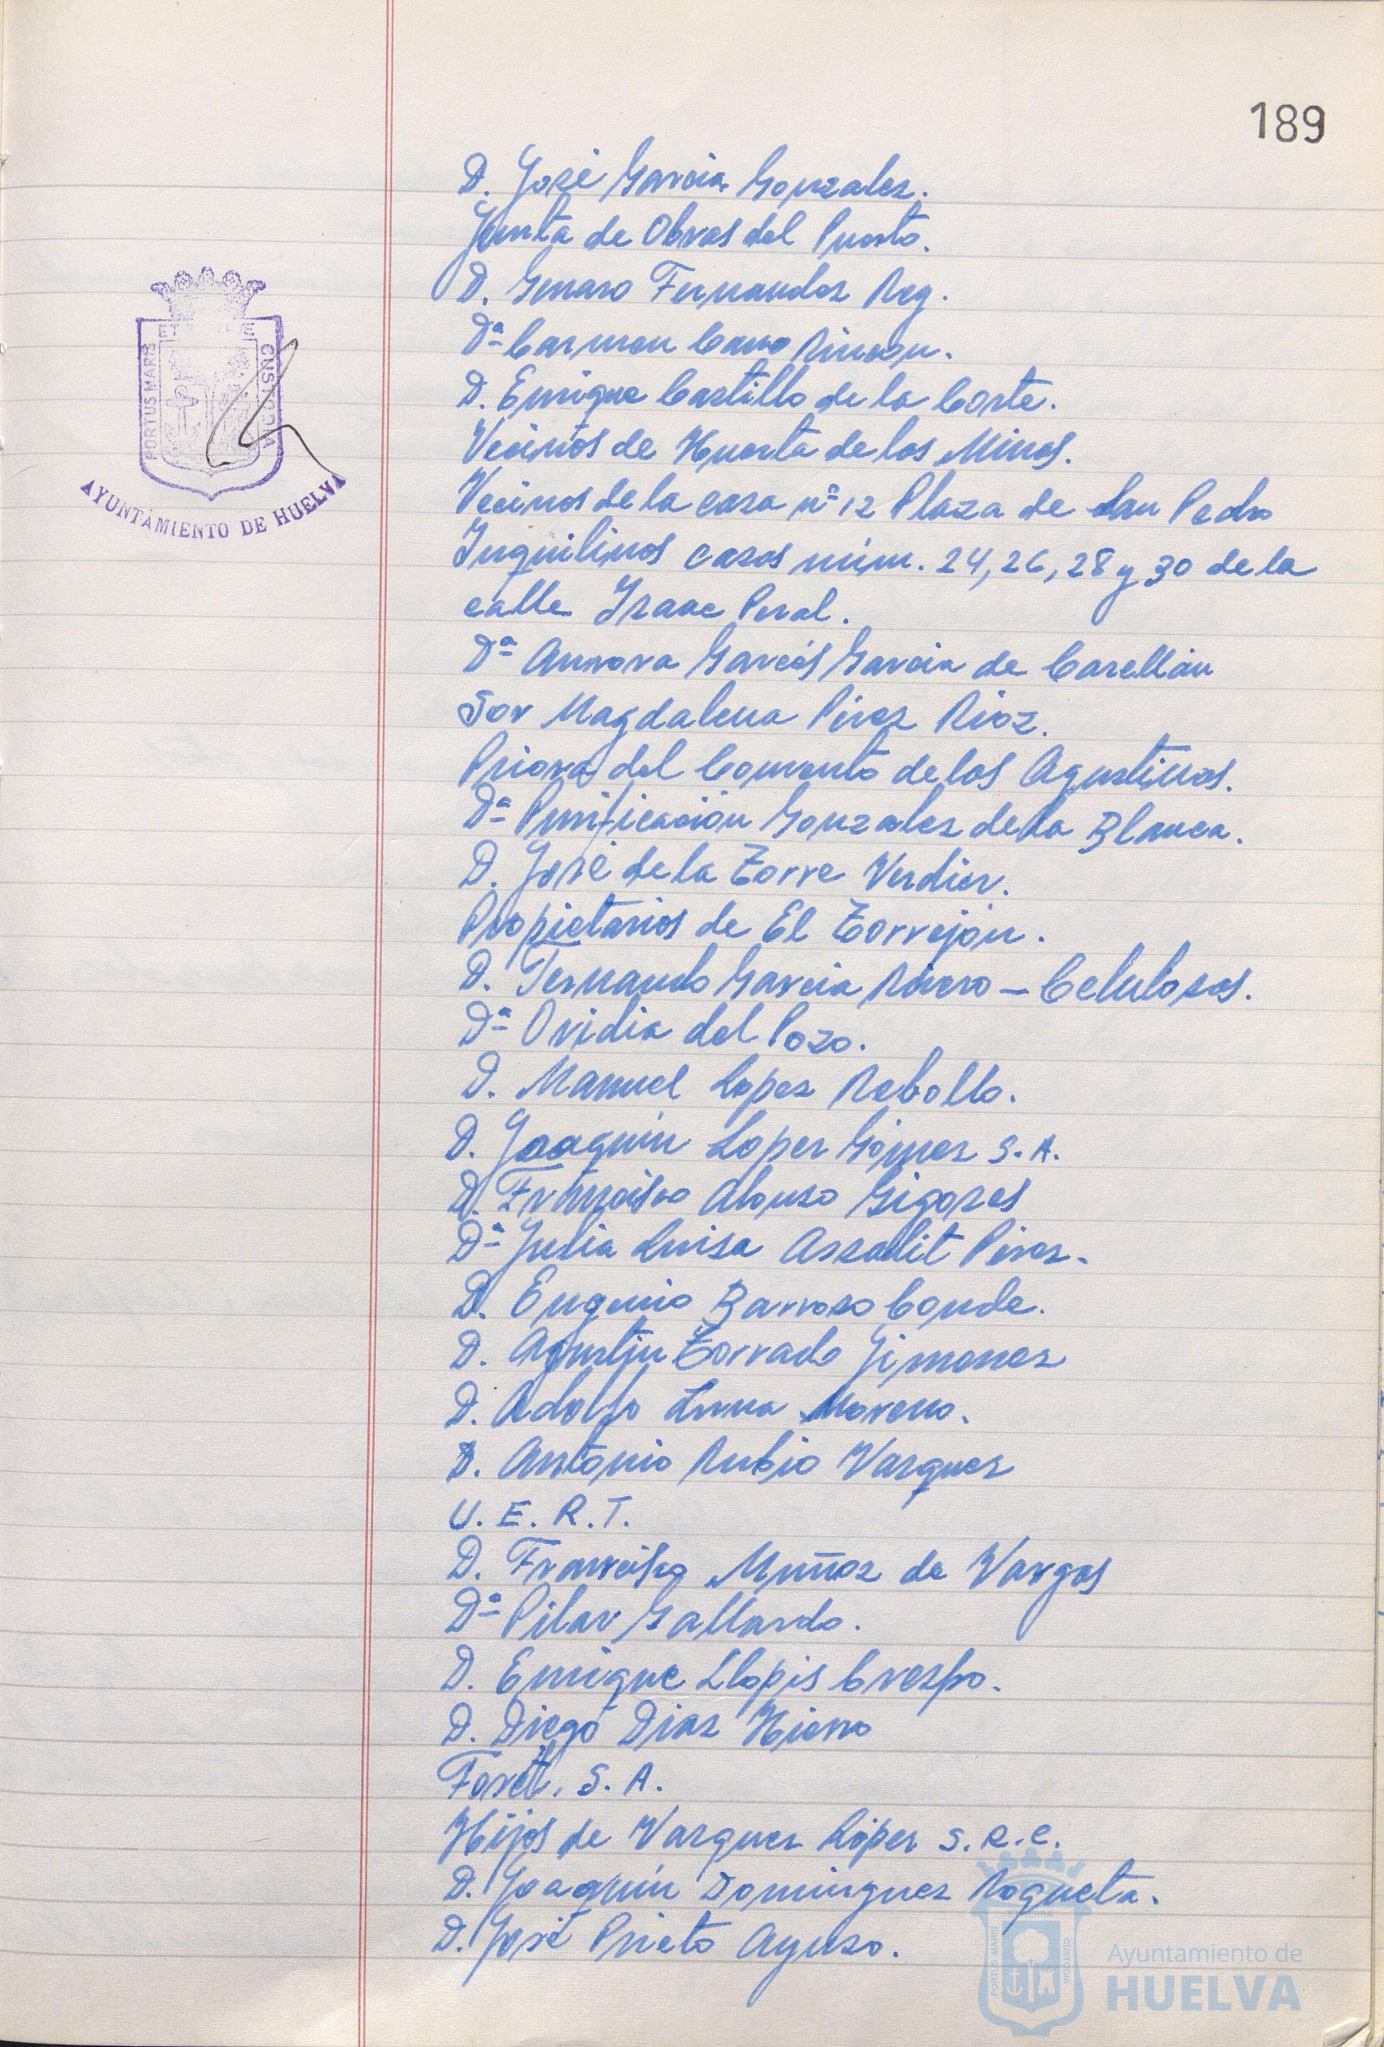 189
D. José Garcia Gonzalez.
Junta de Obras del Puerto.
D. Genaro Fernandez Rey.
Dª Carmen Cano Rincon.
D. Enrique Castillo de la Corte.
Vecinos de Huerta de los Minas.
Vecinos de la casa nº 12 Plaza de San Pedro
Inquilinos casas núm. 24, 26, 28 y 30 de la
calle Isaac Peral.
Dª Aurora Garcés Garcia de Casellán
Sor Magdalena Pérez Rioz.
Priora del Convento de las Agustinas.
Dª Purificación Gonzalez de la Blanca.
D. José de la Torre Verdier.
Propietarios de El Torrejón.
D. Fernando Garcia Rivero - Celulosas.
Dª Ovidia del Pozo.
D. Manuel Lopez Rebollo.
D. Joaquín Lopez Gómez S.A.
D. Francisco Alonso Gigoses
Dª Julia Luisa Assalit Pérez.
D. Eugenio Barroso Conde.
D. Agustín Torrado Jimenez
D. Adolfo Luna Moreno.
D. Antonio Rubio Vazquez
U. E. R. T.
D. Francisco Muñoz de Vargas
Dª Pilar Gallardo.
D. Enrique Llopis Crespo.
D. Diego Diaz Hierro
Foret, S. A.
Hijos de Vazquez López S. R. C.
D. Joaquín Dominguez Roqueta.
D. José Prieto Ayuso.
PORTUS MARIS ET CUSTODIA
AYUNTAMIENTO DE HUELVA
PORTUS MARIS CUSTODIA
Ayuntamiento de
HUELVA